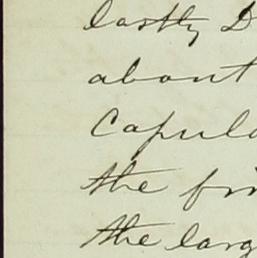 lastly D
about
Capula
the fir
the larg